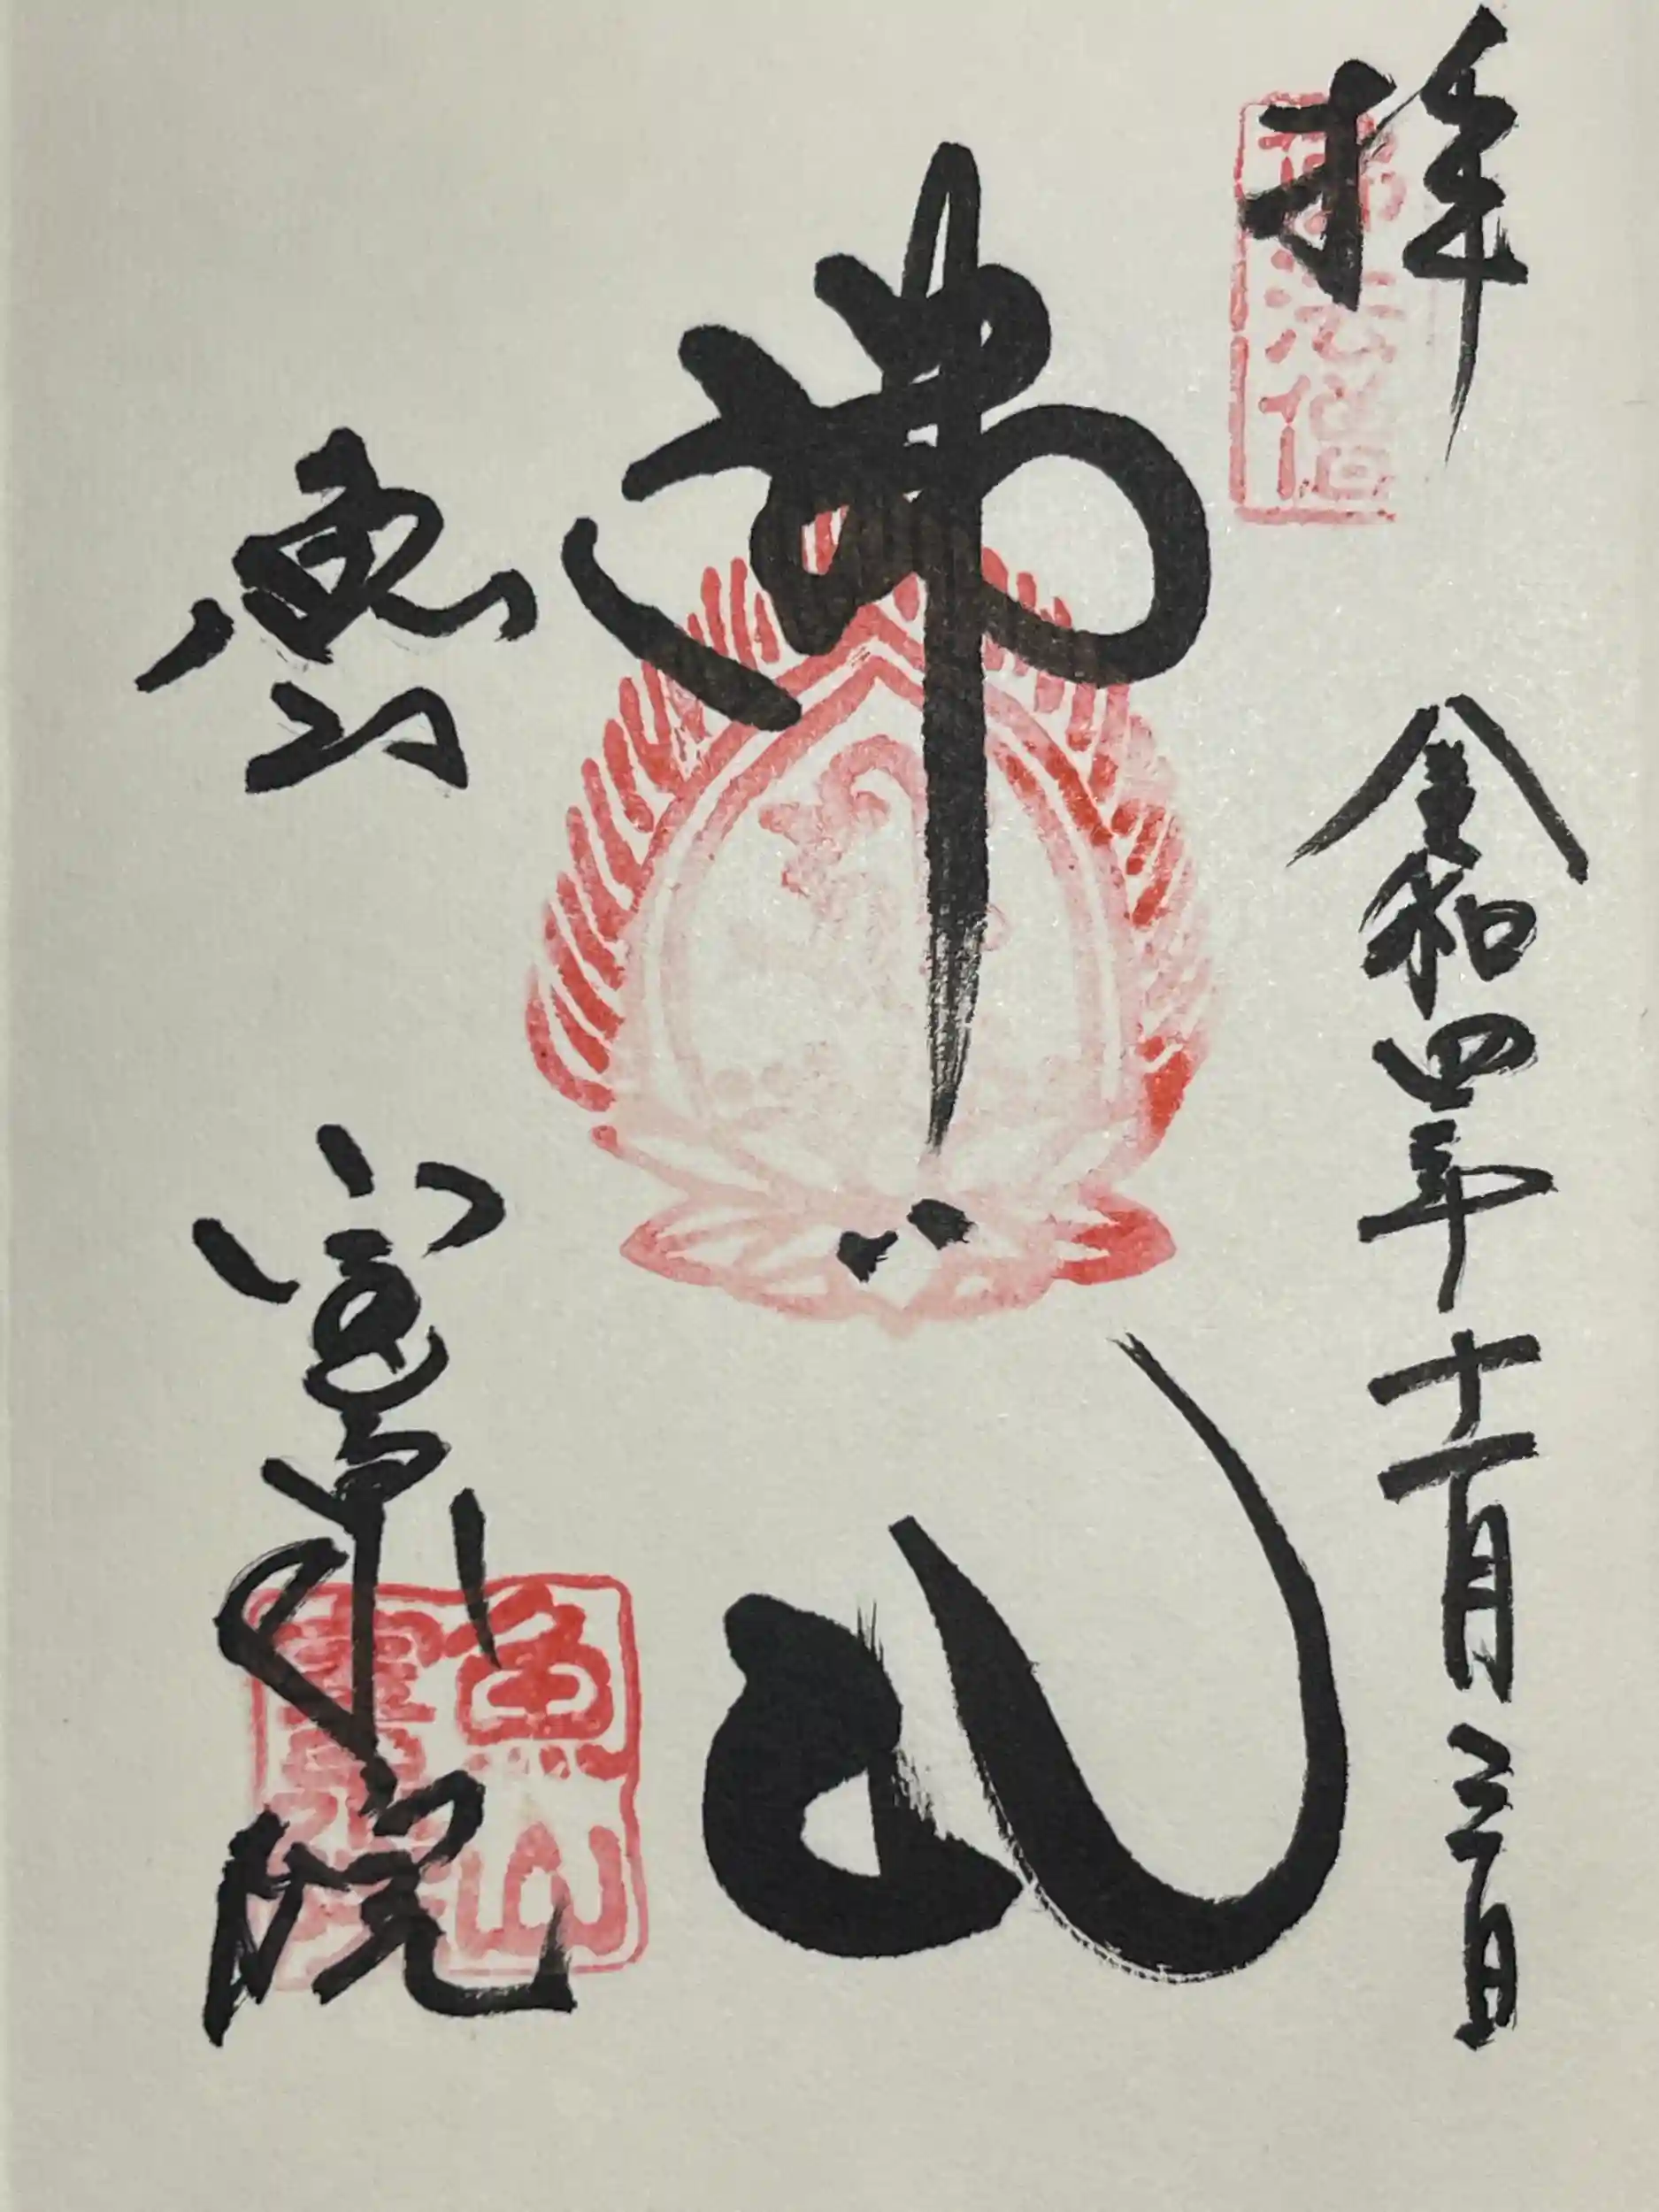 拝
令和四年十一月三日
佛法僧
佛心
魚山
寶泉院
魚山
寶泉院